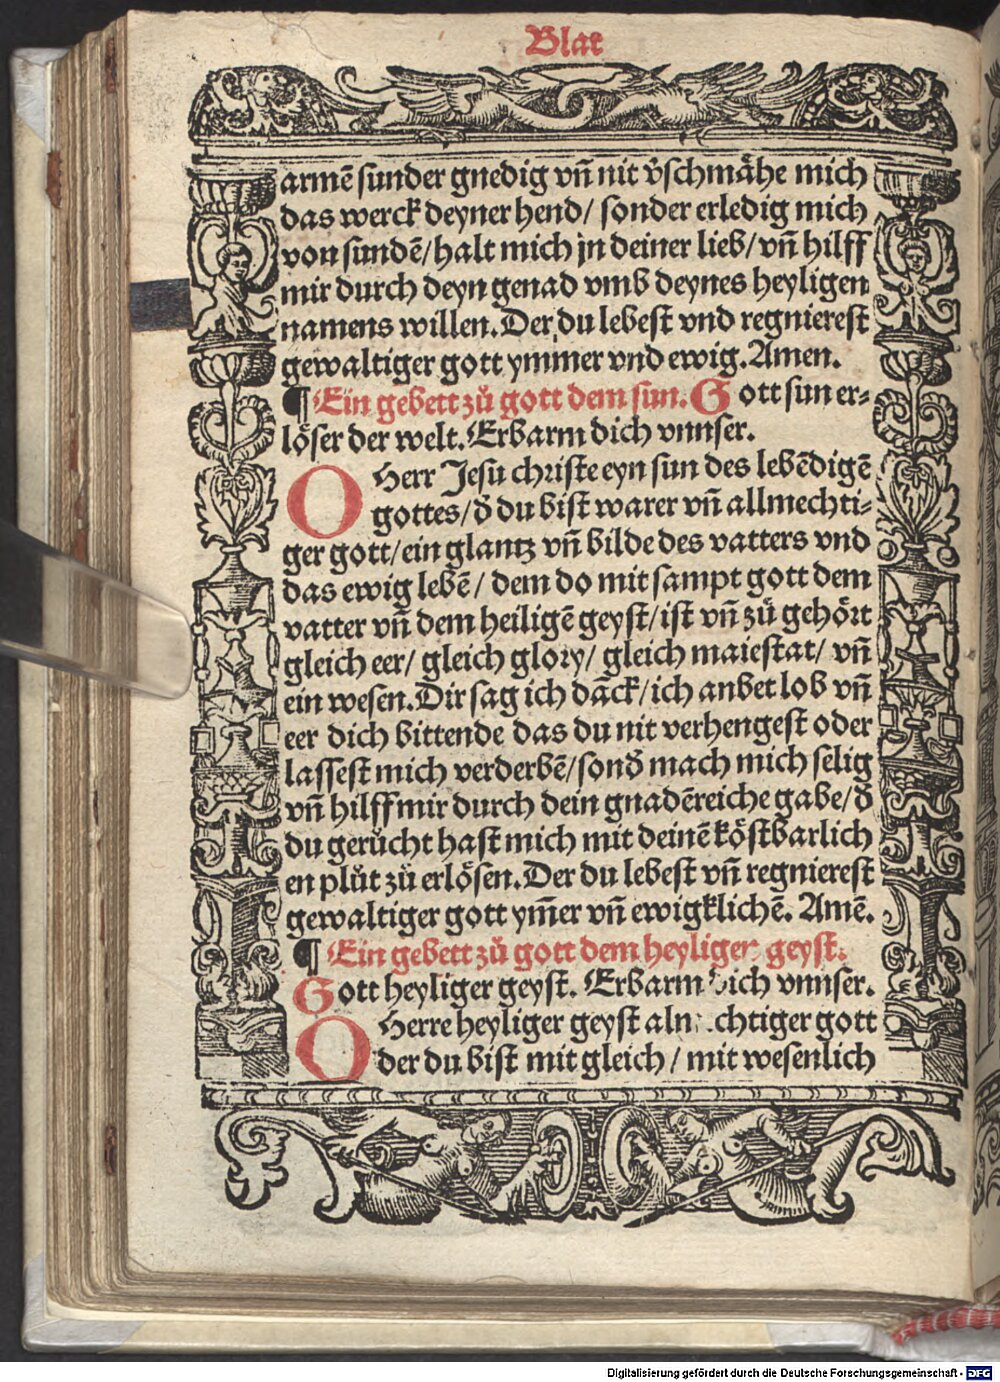 Blat
armē sunder gnedig vn̄ nit v̓schmähe mich
das werck deyner hend/ sonder erledig mich
von sundē/halt mich jn deiner lieb/vn̄ hilff
mir durch deyn genad vmb deynes heyligen
namens willen.Der du lebest vnd regnierest
gewaltiger gott ymmer vnd ewig.Amen.
¶ Ein gebett zů gott dem sun. Gott sun er⸗
löser der welt.Erbarm dich vnnser.
O Herr Jesu christe eyn sun des lebēdigē
gottes/ď du bist warer vn̄ allmechti⸗
ger gott/ein glantz vn̄ bilde des vatters vnd
das ewig lebē/ dem do mit sampt gott dem
vatter vn̄ dem heiligē geyst/ist vn̄ zů gehört
gleich eer/ gleich glory/ gleich maiestat/ vn̄
ein wesen.Dir sag ich dāck/ich anbet lob vn̄
eer dich bittende das du nit verhengest oder
lassest mich verderbē/sonď mach mich selig
vn̄ hilff mir durch dein gnadēreiche gabe/ď
du gerůcht hast mich mit deinē köstbarlich
en plůt zů erlösen.Der du lebest vn̄ regnierest
gewaltiger gott ym̄er vn̄ ewigklichē. Amē.
¶ Ein gebett zů gott dem heyligen geyst.
Gott heyliger geyst. Erbarm dich vnnser.
O Herre heyliger geyst alm chtiger gott
der du bist mit gleich / mit wesenlich
Digitalisierung gefördert durch die Deutsche Forschungsgemeinschaft - DFG